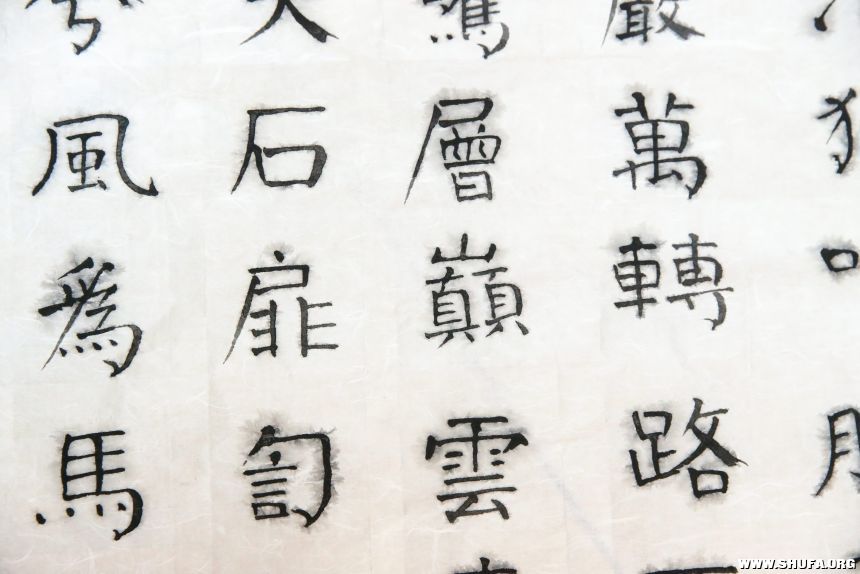 萬轉路
層巔雲
石扉訇
風爲馬
WWW.SHUFA.ORG